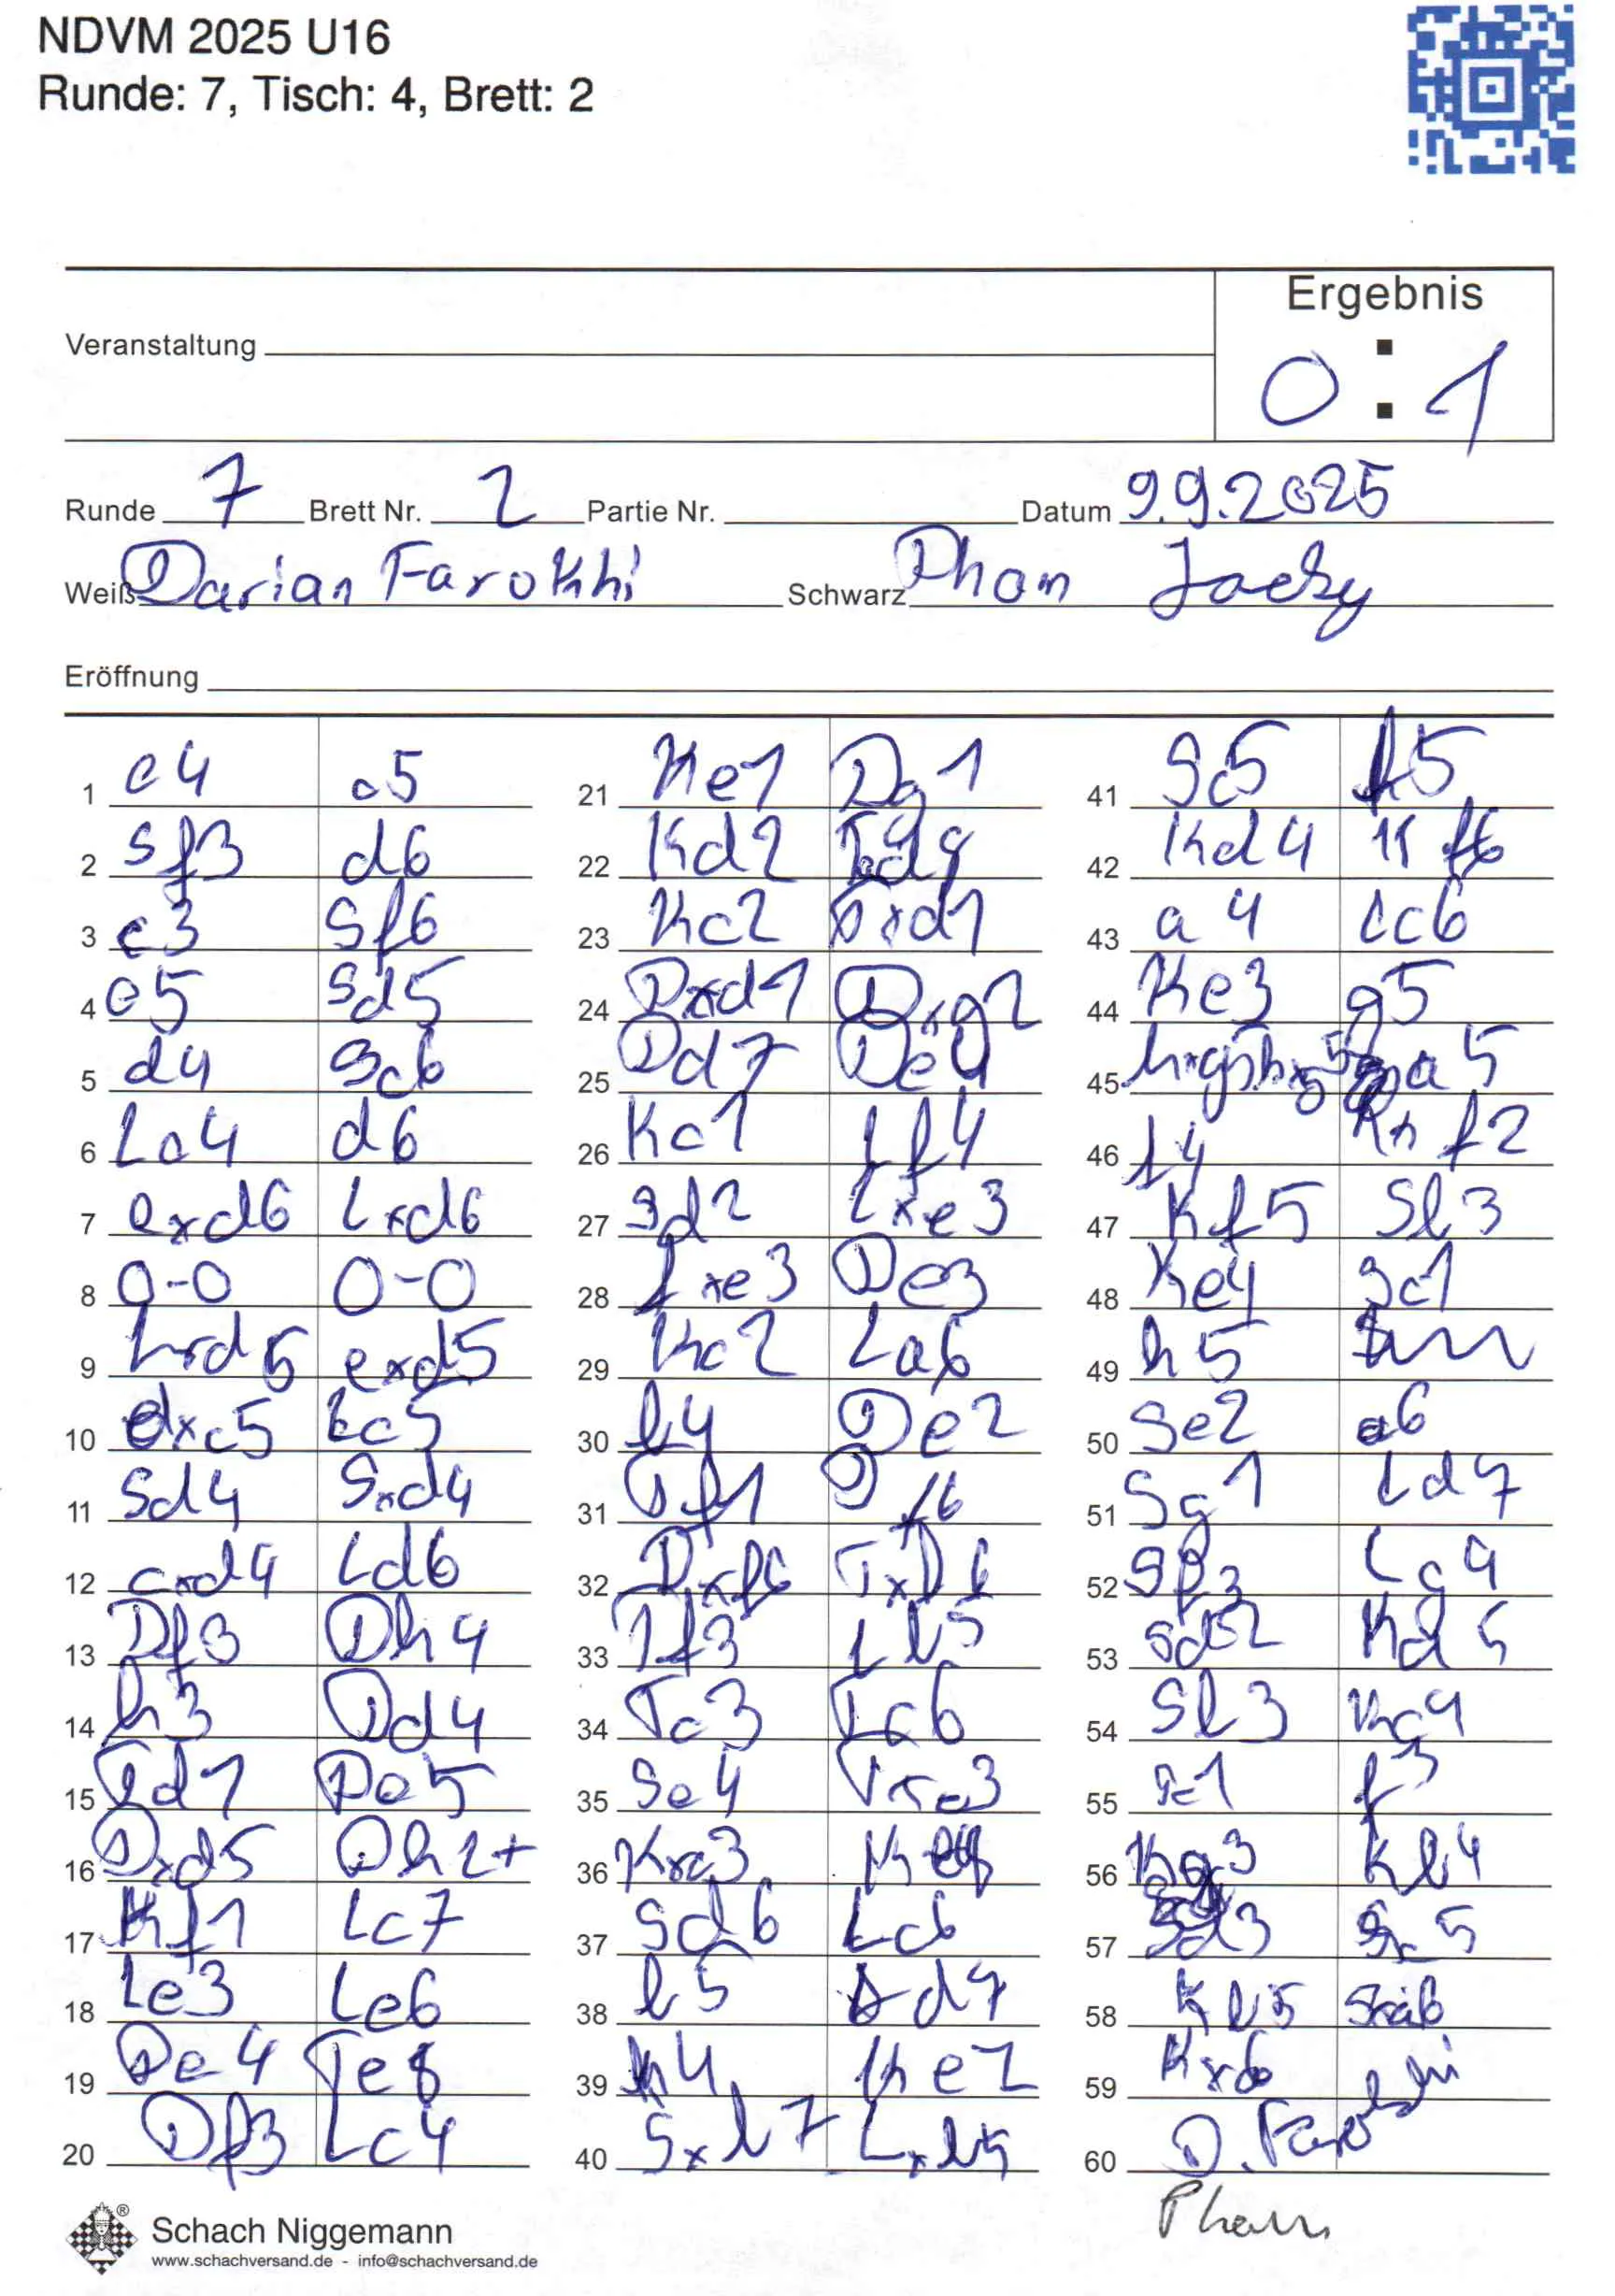 NDVM 2025 U16
Runde: 7, Tisch: 4, Brett: 2
Ergebnis
Veranstaltung
0 : 1
Runde 7 Brett Nr. 2 Partie Nr. Datum 9.9.2025
Weiß Darian Farokhi Schwarz Phan Jacky
Eröffnung
1 e4 c5
2 Sf3 d6
3 c3 Sf6
4 e5 Sd5
5 d4 Sc6
6 Lc4 d6
7 exd6 Lxd6
8 0-0 0-0
9 Lxd5 exd5
10 dxc5 Lc5
11 Sd4 Sxd4
12 cxd4 Ld6
13 Df3 Dh4
14 h3 Dd4
15 Td1 De5
16 Dxd5 Dh2+
17 Kf1 Lc7
18 Le3 Le6
19 De4 Te8
20 Df3 Lc4
21 Ke1 Dg1
22 Kd2 Td8
23 Kc2 Txd1
24 Dxd1 Dxg2
25 Dd7 De4
26 Kc1 Lf4
27 Sd2 Lxe3
28 fxe3 De3
29 Kc2 La6
30 b4 De2
31 Df1 Df6
32 Dxf6 TxD6
33 Tf3 Lb5
34 Tc3 Tc6
35 Se4 Txc3
36 Kxc3 Kf8
37 Sd6 Lc6
38 b5 Ld7
39 h4 Ke7
40 Sxb7 Lxb5
41 Sc5 f5
42 Kd4 Kf6
43 a4 Lc6
44 Ke3 g5
45 hxg5 hxg5 a5
46 f4
47 Kf5 Sb3
48 Ke4 Sc1
49 h5
50 Se2 a6
51 Sg1 Ld7
52 Sf3 Lg4
53 Sd2 Kd5
54 Sb3 Kc4
55 f3
56 Kg3 Kb4
57 Sd3
58 Kb5
59
60 D. Farokhi
Pham
Schach Niggemann
www.schachversand.de - info@schachversand.de